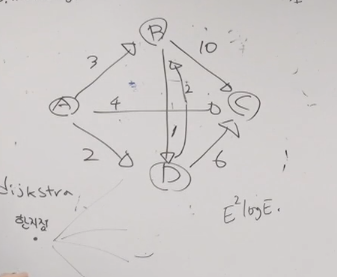 B
3
10
A
4
2
C
1
2
D
6
dijkstra
한지점
E²logE.